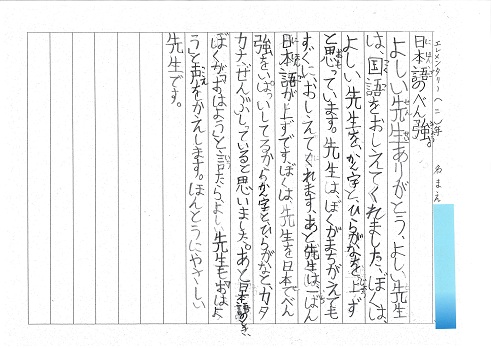 エレメンタリー(二)年 名まえ
日本語のべん強
よしい先生ありがとう、よしい先生
は、国語をおしえてくれました、ぼくは、
よしい先生を、かん字と、ひらがなを、上ず
と思っています。先生は、ぼくがまちがえても
すぐにおしえてくれます。あと先生は、一ばん
日本語が上ずです、ぼくは、先生を日本でべん
強をいぱいしてるからかん字と、ひらがなと、カタ
カナ、ぜんぶしっていると思いました。あと
ぼくが「おはようと」言ったらよしい先生も「おはよ
うと」声をかえします。ほんとうにやさしい
先生です。